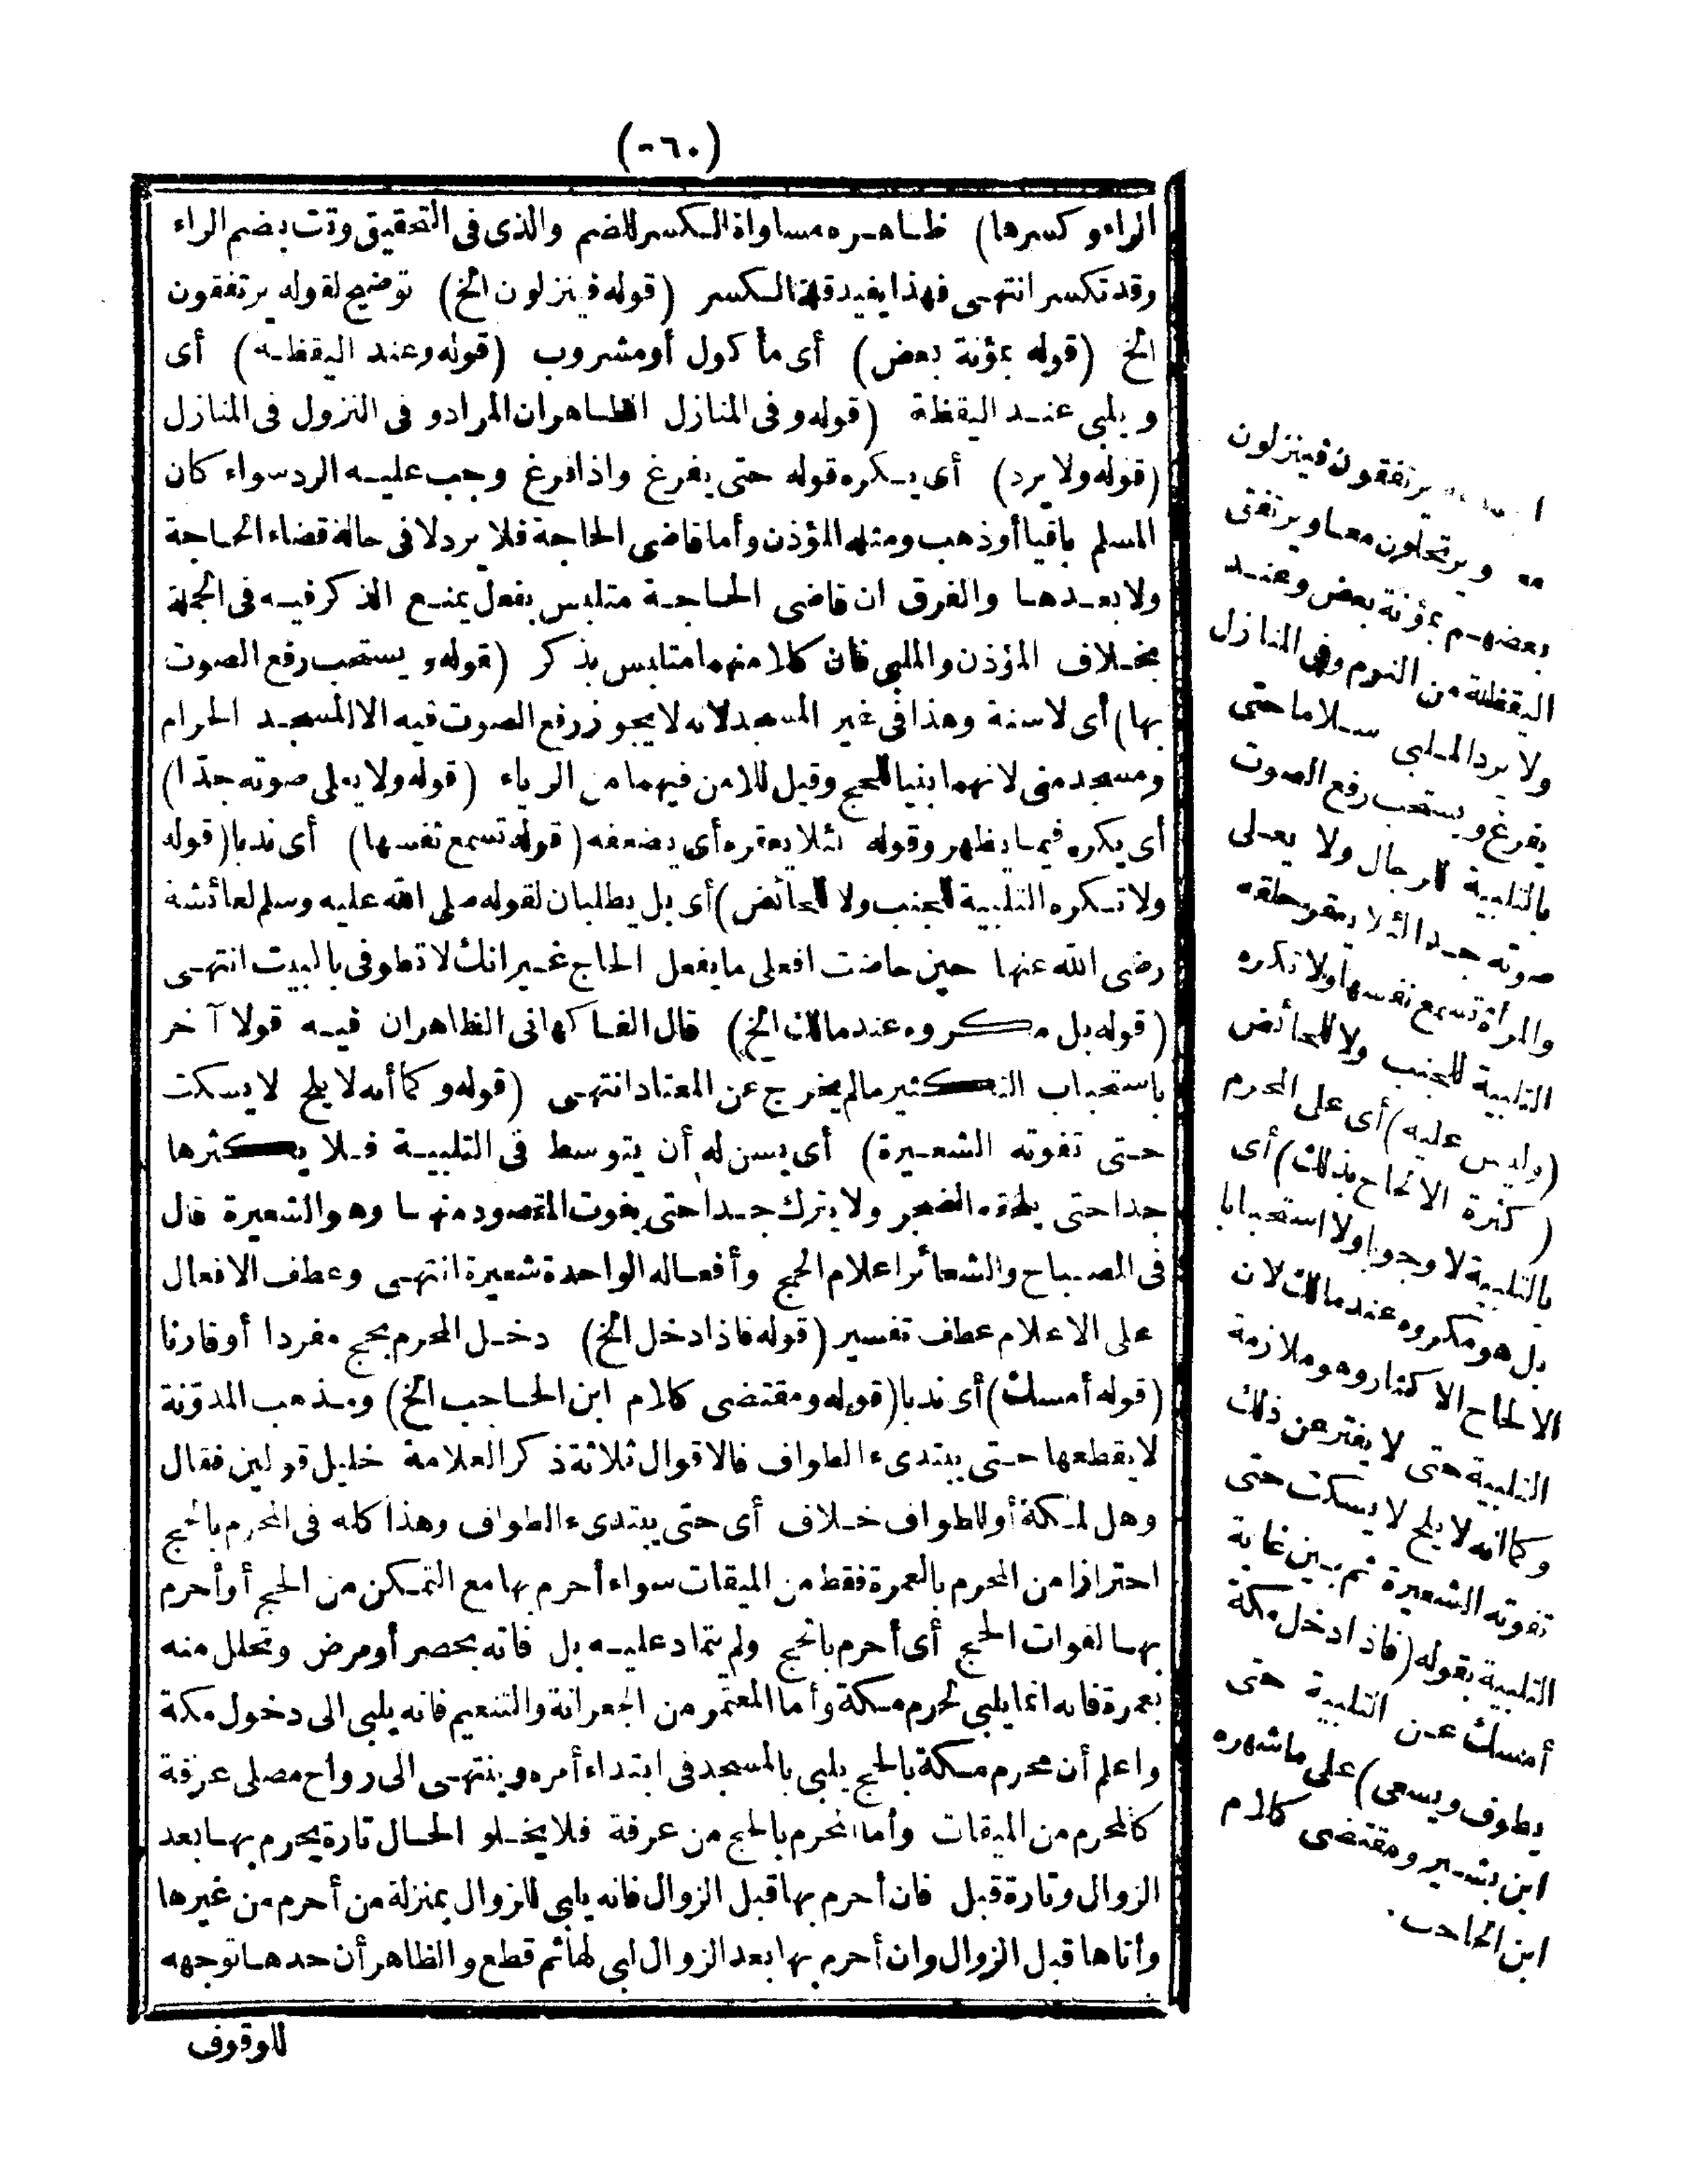 (٦٠-)
الراء وكسرها) ظاهره مساواة الكسر للضم والذى فى التحقيق وتت بضم الراء
وقد تكسر انتهى فهذا يفيد قلة الكسر (قوله فينزلون الخ) توضيح لقوله يرتفقون
الخ (قوله بمؤنة بعض) أى مأكول أومشروب (قوله وعند اليقظة) أى
ويلبى عند اليقظة (قوله وفى المنازل الظاهران المرادو فى النزول فى المنازل
(قوله ولا يرد) أى يكره قوله حتى يفرغ واذا فرغ وجب عليه الرد سواء كان
المسلم باقيا أوذهب ومثله المؤذن وأما قاضى الحاجة فلا يرد لا فى حالة قضاء الحاجة
ولا بعدها والفرق ان قاضى الحاجة متلبس بفعل يمنع الذكر فيه فى الجملة
بخلاف المؤذن والملبى فان كلا منهما متلبس بذكر (قوله ويستحب رفع الصوت
بها) أى لا سنة وهذا فى غير المسجد لانه لا يجوز رفع الصوت فيه الا المسجد الحرام
ومسجد منى لانهما بنيا للحج وقيل للامن فيهما من الرياء (قوله ولا يعلى صوته جدّا)
أى يكره فيما يظهر وقوله لئلا يعقره أى يضعفه (قوله تسمع نفسها) أى ندبا (قوله
ولا تكره التلبية للجنب ولا للحائض) أى بل يطلبان لقوله صلى الله عليه وسلم لعائشة
رضى الله عنها حين حاضت افعلى ما يفعل الحاج غير انك لا تطوفى بالبيت انتهى
(قوله بل مكروه عند مالك الخ) قال الفاكهانى الظاهران فيه قولا آخر
باستحباب التكثير مالم يخرج عن المعتاد انتهى (قوله وكما أنه لا يلح لا يسكت
حتى تفوته الشعيرة) أى يسن له أن يتوسط فى التلبية فلا يكثرها
جدا حتى يلحقه الضجر ولا يترك جدا حتى يفوت المقصود منها وهو الشعيرة قال
فى المصباح والشعائر اعلام الحج وأفعاله الواحدة شعيرة انتهى وعطف الافعال
على الاعلام عطف تفسير (قوله فاذا دخل الخ) دخل المحرم بحج مفردا أوقارنا
(قوله أمسك) أى ندبا (قوله ومقتضى كلام ابن الحاجب الخ) ومذهب المدوّنة
لا يقطعها حتى يبتدىء الطواف فالاقوال ثلاثة ذكر العلامة خليل قولين فقال
وهل لمكة أوللطواف خلاف أى حتى يبتدىء الطواف وهذا كله فى المحرم بالحج
احترازا من المحرم بالعمرة فقط من الميقات سواء أحرم بها مع التمكن من الحج أو أحرم
بها لفوات الحج أى أحرم بالحج ولم يتماد عليه بل فاته بحصر أومرض وتحلل منه
بعمرة فانه انما يلبى لحرم مكة وأما المعتمر من الجعرانة والتنعيم فانه يلبى الى دخول مكة
واعلم أن محرم مكة بالحج يلبى بالمسجد فى ابتداء أمره وينتهى الى رواح مصلى عرفة
كالمحرم من الميقات وأما المحرم بالحج من عرفة فلا يخلو الحال تارة يحرم بها بعد
الزوال وتارة قبل فان أحرم بها قبل الزوال فانه يلبى للزوال بمنزلة من أحرم من غيرها
وأتاها قبل الزوال وان أحرم بها بعد الزوال لبى لها ثم قطع والظاهر أن حدها توجهه
للوقوف
يرتفقون فينزلون
ويرتحلون معا ويرتفق
بعضهم بمؤنة بعض وعند
اليقظة من النوم وفى المنازل
ولا يرد الملبى سلاما حتى
يفرغ ويستحب رفع الصوت
بالتلبية للرجال ولا يعلى
صوته جدا لئلا يعقر حلقه
والمرأة تسمع نفسها ولا تكره
التلبية للجنب ولا للحائض
(وليس عليه) أى على المحرم
(كثرة الالحاح بذلك) أى
بالتلبية لا وجوبا ولا استحبابا
بل هو مكروه عند مالك لان
الالحاح الاكثار وهو ملازمة
التلبية حتى لا يفتر عن ذلك
وكما انه لا يلح لا يسكت حتى
تفوته الشعيرة ثم بين غاية
التلبية بقوله (فاذا دخل مكة
أمسك عن التلبية حتى
يطوف ويسعى) على ما شهره
ابن بشير ومقتضى كلام
ابن الحاجب.